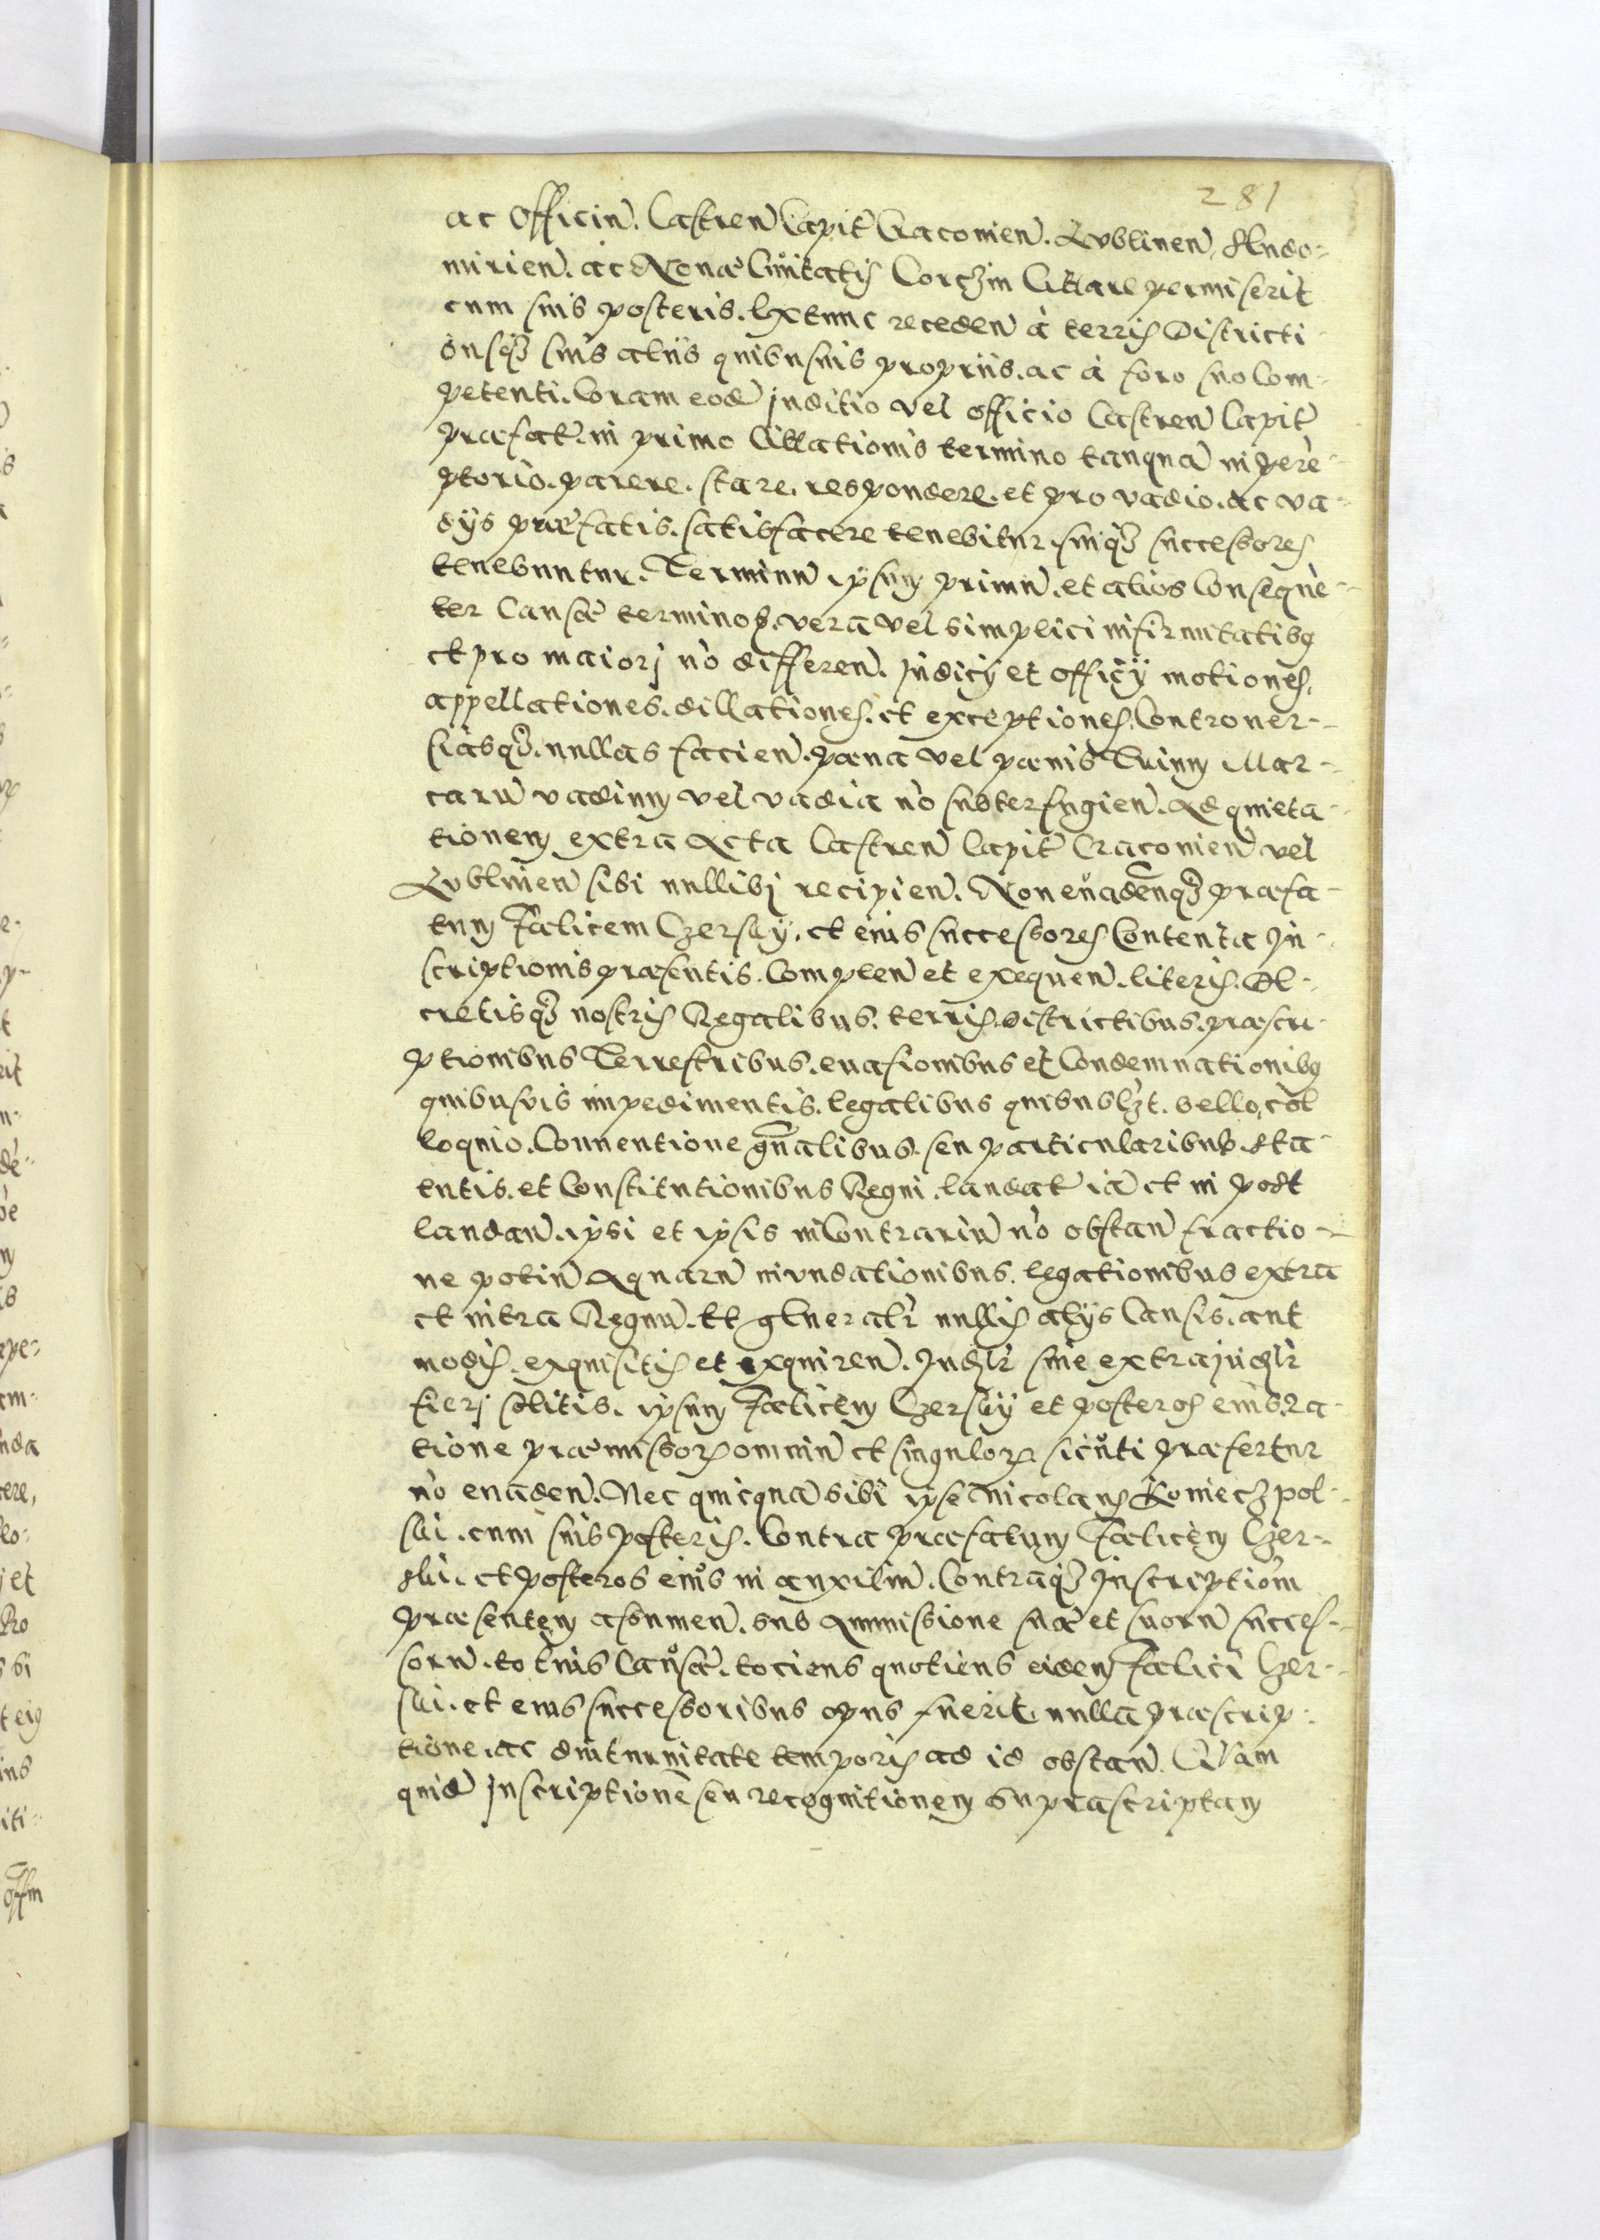 281
ac Officiū. Castreñ Capit̃ Cracovien̄. Lublinen̄. Sendo-
mirien̄. ac Novæ Civitatis Corczin Citare permiserit
cum suis posteris. Extunc receden̄ à terris Districti-
busq₃ suis aliis quibusvis propriis. ac à foro suo Com-
petenti. Coram eodē Juditio vel officio Castren̄ Capit̄
præfat̄. in primo Citationis termino tanquā in perē-
ptorio. parere. stare. respondere. et pro vadio. ac va-
dijs præfatis. satisfacere tenebitur. suiq₃ successores
tenebuntur. Terminū ipsum primū. et alios Consequē-
ter Causæ terminos. vera vel simplici infirmitatibꝫ
et pro maiorj nō differen̄. Judicij et officij motiones.
appellationes. dillationes. et exceptiones. Controver-
siasq₃. nullas facien̄. pœna vel pœnis Trium Mar-
carū vadium vel vadia nō subterfugien̄. Ad quieta-
tionem extra Acta Castren̄ Capit̄ Cracovien̄ vel
Lublinen̄ sibi nullibj recipien̄. Non evadenq₃ præfa-
tum Fælicem Czersky. et eius successores Contenta In-
scriptionis præsentis. Complen̄ et exequen̄. literis. De-
cretisq₃ nostris Regalibus. terris. districtibus. præscri-
ptionibus Terrestribus. evasionibus et Condemnationibꝫ
quibusvis impedimentis. legalibus quibuslꝫt. bello, col-
loquio. Conventione gn̄alibus. seu particularibus. Sta-
tutis. et Constitutionibus Regni. laudat̄ iā et in post̄
laudan̄. ipsi et ipsis in Contrariū nō obstan̄ fractio-
ne potiū Aquarū inundationibus. legationibus extra
et intra Regnū. Et generalr̄ nullis alijs Causis. aut
modis. exquisitis et exquiren̄. Judꝫlr̄ sive extrajudꝫlr̄
fierj solitis. ipsum Fælicem Czersky et posteros eius. ra-
tione præmissoꝝ omniū et singuloꝝ. sicuti præfertur
nō evaden̄. Nec quicquā sibi ipse Nicolaus Konieczpol-
ski. cum suis posteris. Contra præfatum Fælicem Czer-
ski. et posteros eius in auxiliū. Contraq₃ Inscriptiōm
præsentem assumen̄. sub Ammissione suæ et suorū succes-
sorū. totius Causæ. tociens quotiens eidem Fælici Czer-
ski. et eius successoribus opus fuerit, nulla præscrip-
tione. ac diuturnitate temporis ad id obstan̄. Quam
quid̄ Inscriptionē seu recognitionem supra scriptam